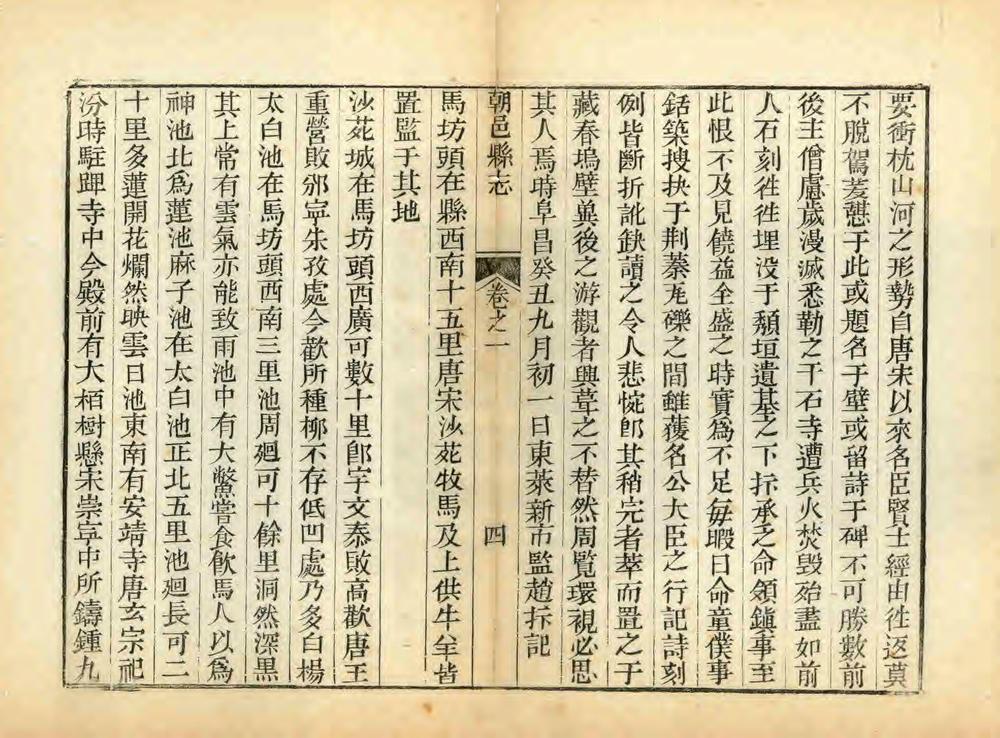 要衝枕山河之形勢自唐宋以來名臣賢士經由徃返莫
不脫駕芟憇于此或題名于壁或留詩于碑不可勝數前
後主僧慮歲漫滅悉勒之于石寺遭兵火焚毀殆盡如前
人石刻徃徃埋没于頽垣遺基之下拆承乏命領鎮事至
此恨不及見饒益全盛之時實爲不足每暇日命童僕事
銛築搜抉于荆蓁瓦礫之間雖蒦名公大臣之行記詩刻
例皆斷折訛缺讀之令人悲惋郎其稍完者萃而置之于
藏春塢壁冀後之游觀者興葺之不替然周覧環視必思
其人焉時阜昌癸丑九月初一日東萊新市監趙拆記
朝邑縣志
卷之一
四
馬坊頭在縣西南十五里唐宋沙苑牧馬及上供牛羊皆
置監于其地
沙苑城在馬坊頭西廣可數十里郎宇文泰敗高歡唐王
重營敗邠寜朱孜處今歡所種柳不存低凹處乃多白楊
太白池在馬坊頭西南三里池周廻可十餘里洞然深黒
其上常有雲氣亦能致雨池中有大鱉嘗食飲馬人以爲
神池北爲蓮池麻子池在太白池正北五里池廻長可二
十里多蓮開花爛然映雲日池東南有安靖寺唐玄宗祀
汾時駐蹕寺中今殿前有大栢樹縣宋崇寜中所鑄鍾九